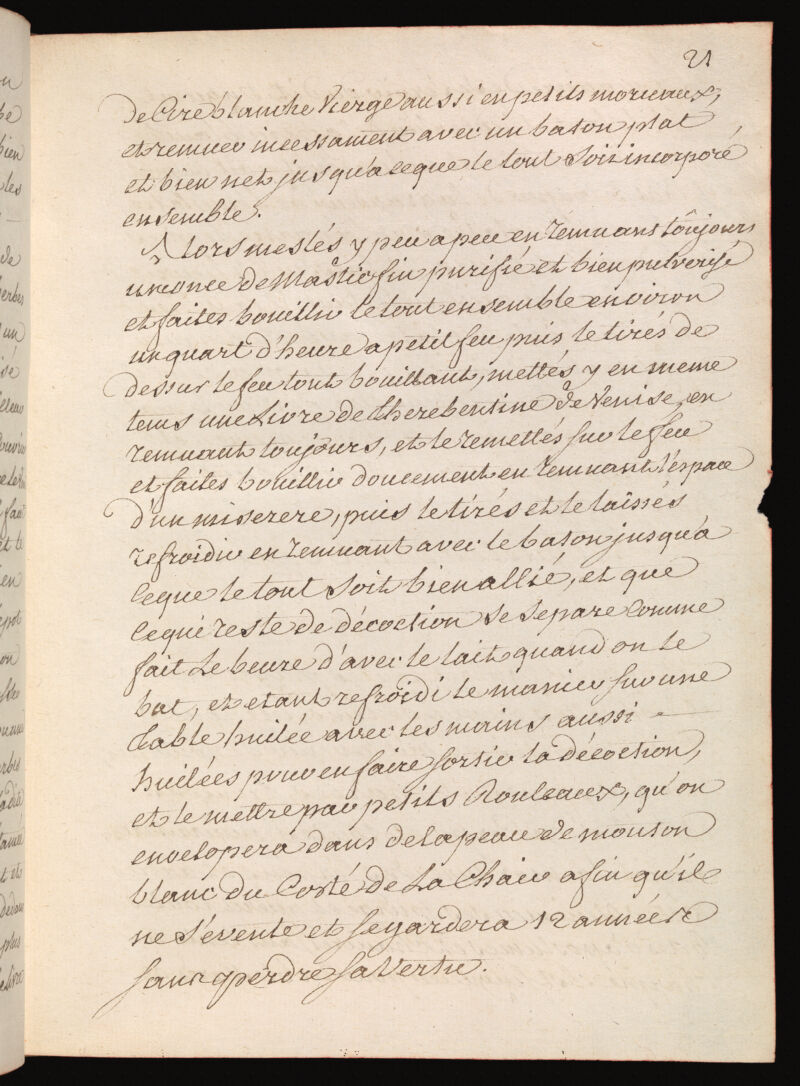 21
de Cire blanche Vierge aussi en petits morceaux,
et remuer incessament avec un baton plat
et bien net jusqu'a ceque le tout soit incorporé
ensemble.
Alors mestés y peu a peu en remuans toûjours
une once de Mastic fin purifié et bien pulverisé
et faites bouillir le tout ensemble environ
un quart d'heure a petit feu, puis le tirés de
dessur le feu tout bouillant, mettés y en meme
tems une Livre de Therebentine de Venise, en
remuant toujours, et le remettés sur le feu
et faites bouillir doucement en remuant l'espace
d'un miserere, puis le tirés et le laissés
refroidir en remuant avec le baton jusqu'a
ceque le tout soit bien allié, et que
ce qui reste de décoction se separe comme
fait Le beure d'avec le lait quand on le
bat, et etant refroidi le manier sur une
Table huilée avec les mains aussi
huilées pour en faire sortir la décoction,
et le mettre par petits Rouleaux, qu'on
envelopera dans de la peau de mouton
blanc du Costé de La Chair afin qu'il
ne s'évente et se gardera 12 années
sans perdre sa Vertu.